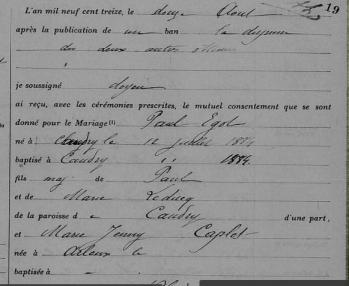 19
L'an mil neuf cent treize, le douze Aout
après la publication de un ban la dispense
des deux autres
je soussigné doyen
ai reçu, avec les cérémonies prescrites, le mutuel consentement que se sont
donné pour le Mariage (1) Paul Egot
né à Caudry le 12 juillet 1884
baptisé à Caudry 1884
fils maj de Paul
et de Marie Leducq
de la paroisse d e Caudry d'une part,
et Marie Jenny Caplet
née à Arleux le
baptisée à